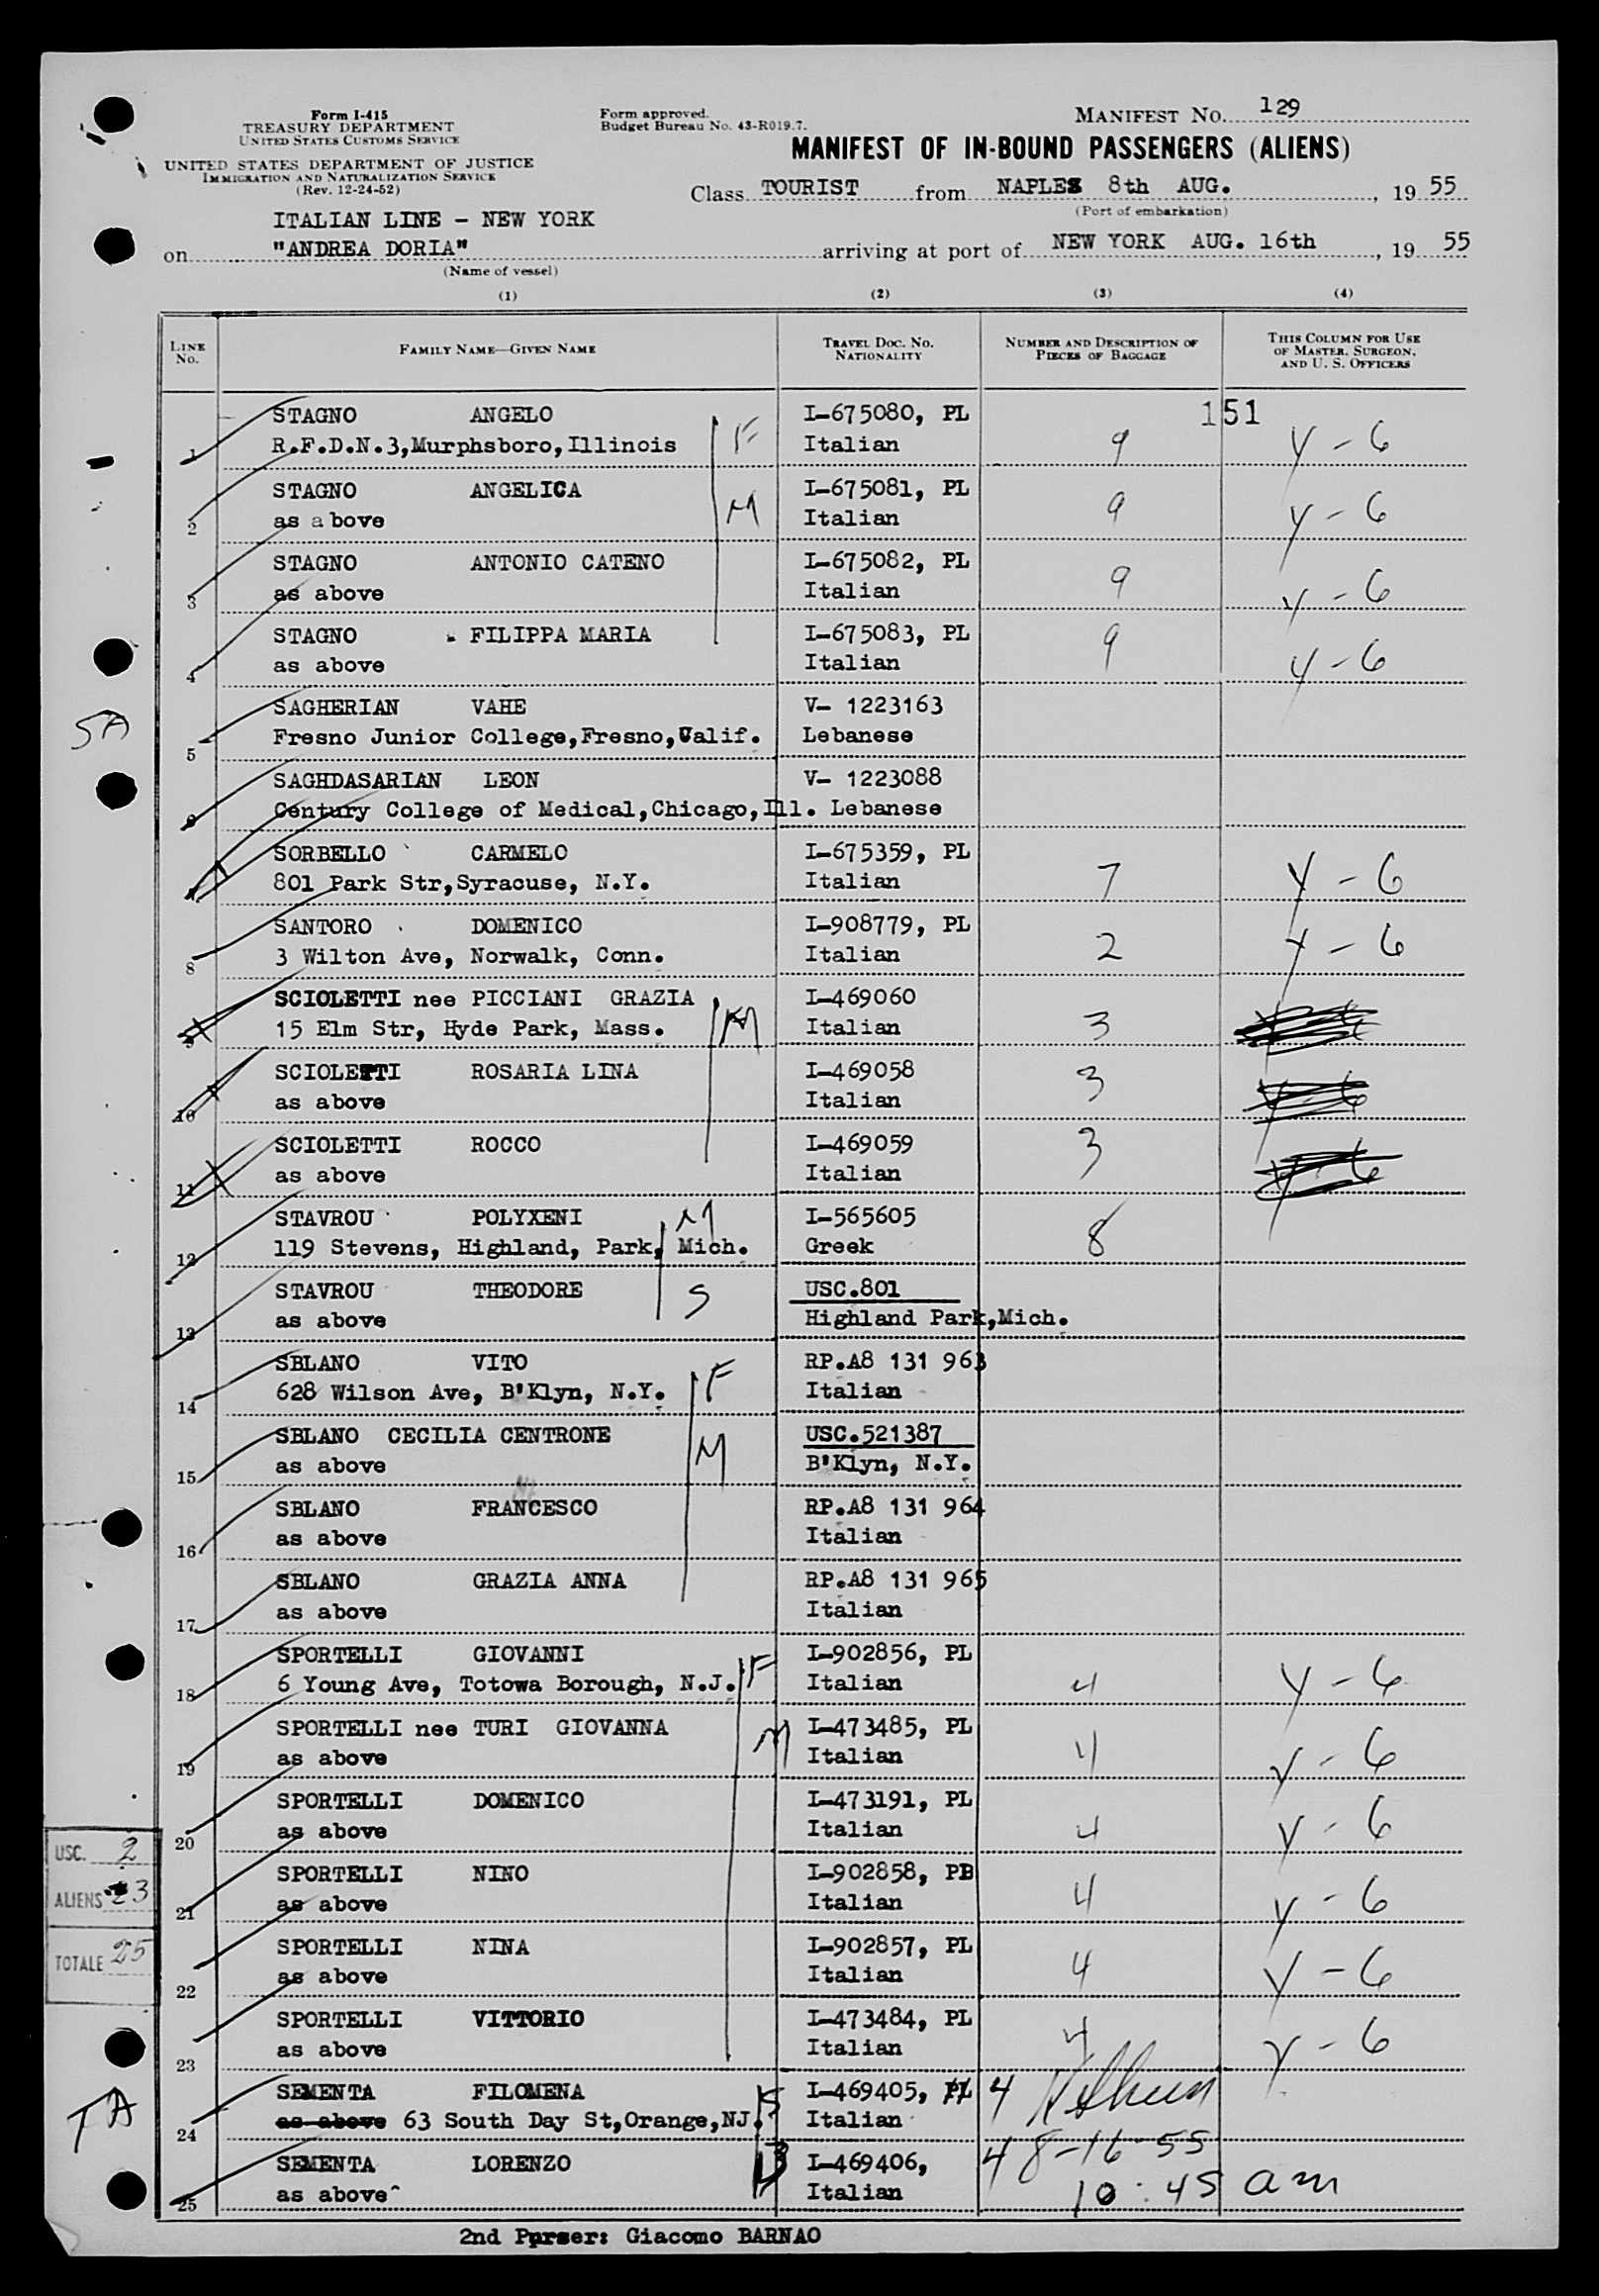 Form I-415
TREASURY DEPARTMENT
UNITED STATES CUSTOMS SERVICE
UNITED STATES DEPARTMENT OF JUSTICE
IMMIGRATION AND NATURALIZATION SERVICE
(Rev. 12-24-52)
Form approved.
Budget Bureau No. 43-R019.7.
MANIFEST NO. 129
MANIFEST OF IN-BOUND PASSENGERS (ALIENS)
Class TOURIST from NAPLES 8th AUG., 19 55
(Port of embarkation)
ITALIAN LINE - NEW YORK
on "ANDREA DORIA" arriving at port of NEW YORK AUG. 16th, 19 55
(Name of vessel)
(1) (2) (3) (4)
LINE NO. FAMILY NAME—GIVEN NAME TRAVEL DOC. NO. NATIONALITY NUMBER AND DESCRIPTION OF PIECES OF BAGGAGE THIS COLUMN FOR USE OF MASTER, SURGEON, AND U. S. OFFICERS
151
1 STAGNO ANGELO I-675080, PL
R.F.D.N.3,Murphsboro,Illinois F Italian 9 Y-6
2 STAGNO ANGELICA I-675081, PL
as above M Italian 9 Y-6
3 STAGNO ANTONIO CATENO I-675082, PL
as above Italian 9 Y-6
4 STAGNO FILIPPA MARIA I-675083, PL
as above Italian 9 Y-6
SA
5 SAGHERIAN VAHE V- 1223163
Fresno Junior College,Fresno,Calif. Lebanese
6 SAGHDASARIAN LEON V- 1223088
Century College of Medical,Chicago,Ill. Lebanese
SORBELLO CARMELO I-675359, PL
801 Park Str,Syracuse, N.Y. Italian 7 Y-6
8 SANTORO DOMENICO I-908779, PL
3 Wilton Ave, Norwalk, Conn. Italian 2 Y-6
9 SCIOLETTI nee PICCIANI GRAZIA I-469060
15 Elm Str, Hyde Park, Mass. M Italian 3
10 SCIOLETTI ROSARIA LINA I-469058
as above Italian 3
11 SCIOLETTI ROCCO I-469059
as above Italian 3
12 STAVROU POLYXENI M I-565605
119 Stevens, Highland, Park, Mich. Greek 8
13 STAVROU THEODORE S USC.801
as above Highland Park,Mich.
14 SBLANO VITO F RP.A8 131 963
628 Wilson Ave, B'Klyn, N.Y. Italian
15 SBLANO CECILIA CENTRONE M USC.521387
as above B'Klyn, N.Y.
16 SBLANO FRANCESCO RP.A8 131 964
as above Italian
17 SBLANO GRAZIA ANNA RP.A8 131 965
as above Italian
18 SPORTELLI GIOVANNI F I-902856, PL
6 Young Ave, Totowa Borough, N.J. Italian 4 Y-6
19 SPORTELLI nee TURI GIOVANNA M I-473485, PL
as above Italian 4 Y-6
20 SPORTELLI DOMENICO I-473191, PL
as above Italian 4 Y-6
21 SPORTELLI NINO I-902858, PB
as above Italian 4 Y-6
22 SPORTELLI NINA I-902857, PL
as above Italian 4 Y-6
23 SPORTELLI VITTORIO I-473484, PL
as above Italian 4 Y-6
24 SEMENTA FILOMENA I-469405, PL 4
as above 63 South Day St,Orange,NJ. S Italian
25 SEMENTA LORENZO B I-469406, 4 8-16-55
as above Italian 10:45 am
USC. 2
ALIENS 23
TOTALE 25
TA
2nd Purser: Giacomo BARNAO